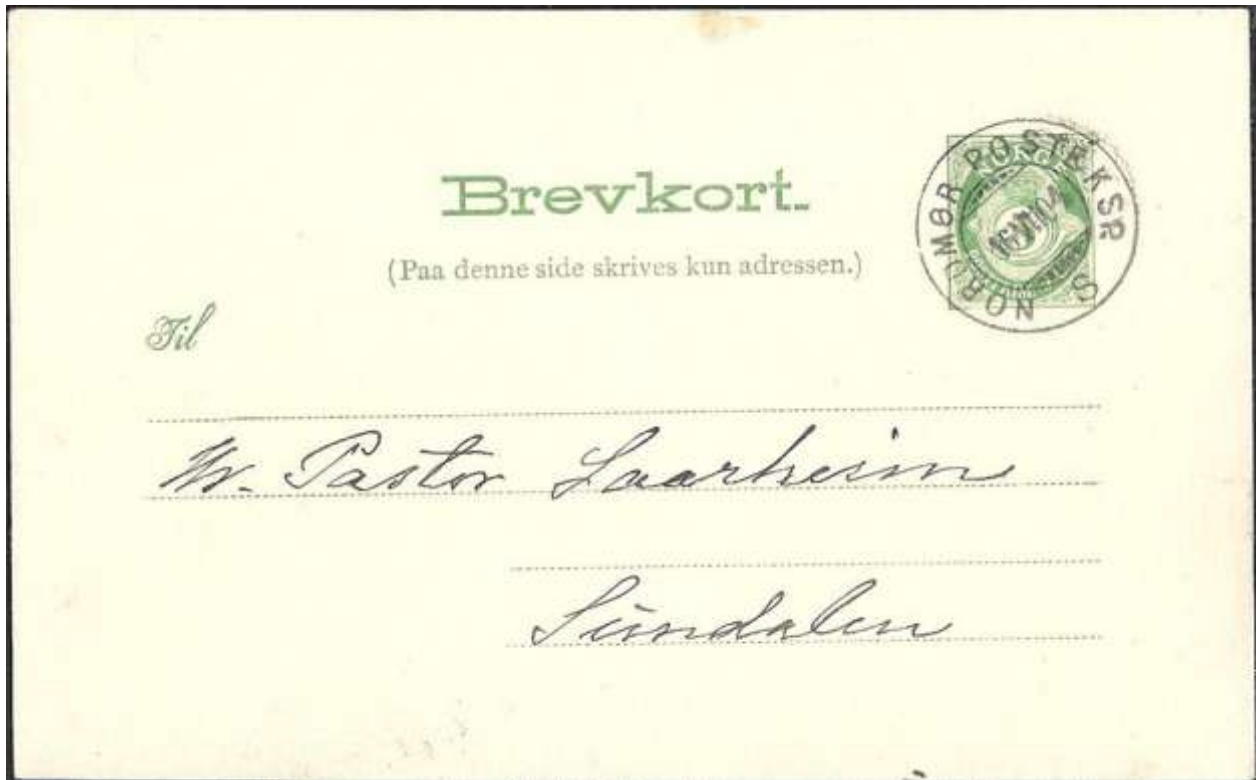 Brevkort.
(Paa denne side skrives kun adressen.)
NORDMØR POSTEKSP. S
NORGE
16 VII 04
5
Til
Hr. Pastor Svarheim
Sundalen